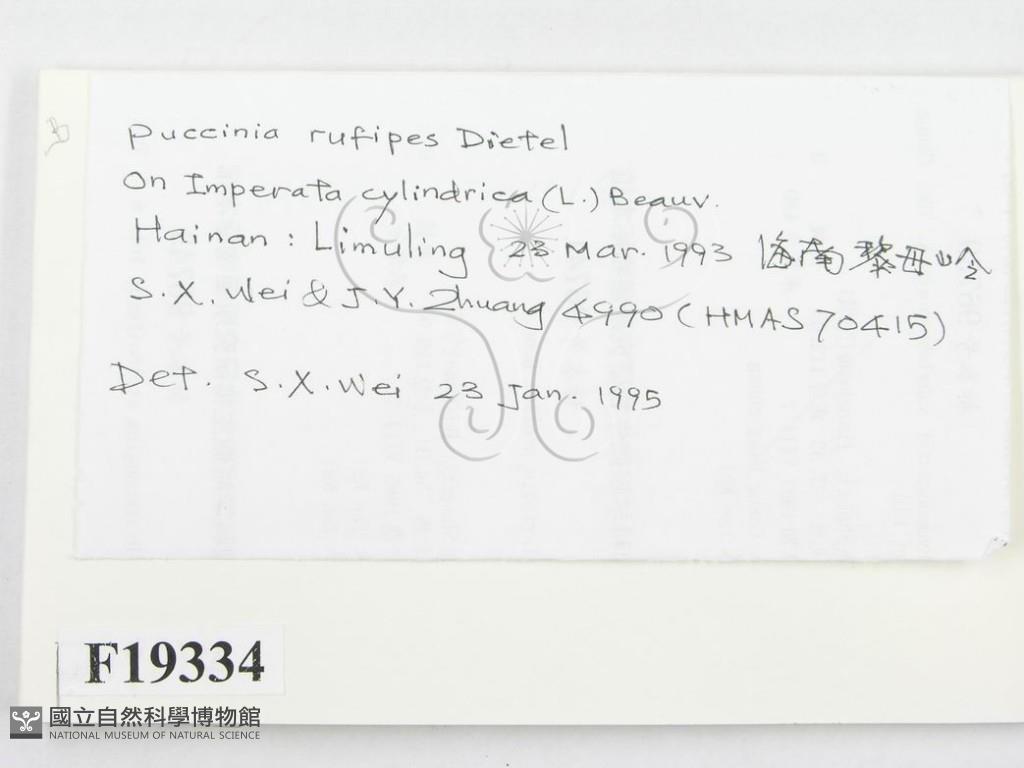 Puccinia rufipes Dietel
On Imperata cylindrica (L.) Beauv.
Hainan : Limuling 23 Mar. 1993 海南黎母岭
S.X. Wei & J.Y. Zhuang 4990 (HMAS 70415)
Det. S.X. Wei 23 Jan. 1995
F19334
國立自然科學博物館
NATIONAL MUSEUM OF NATURAL SCIENCE